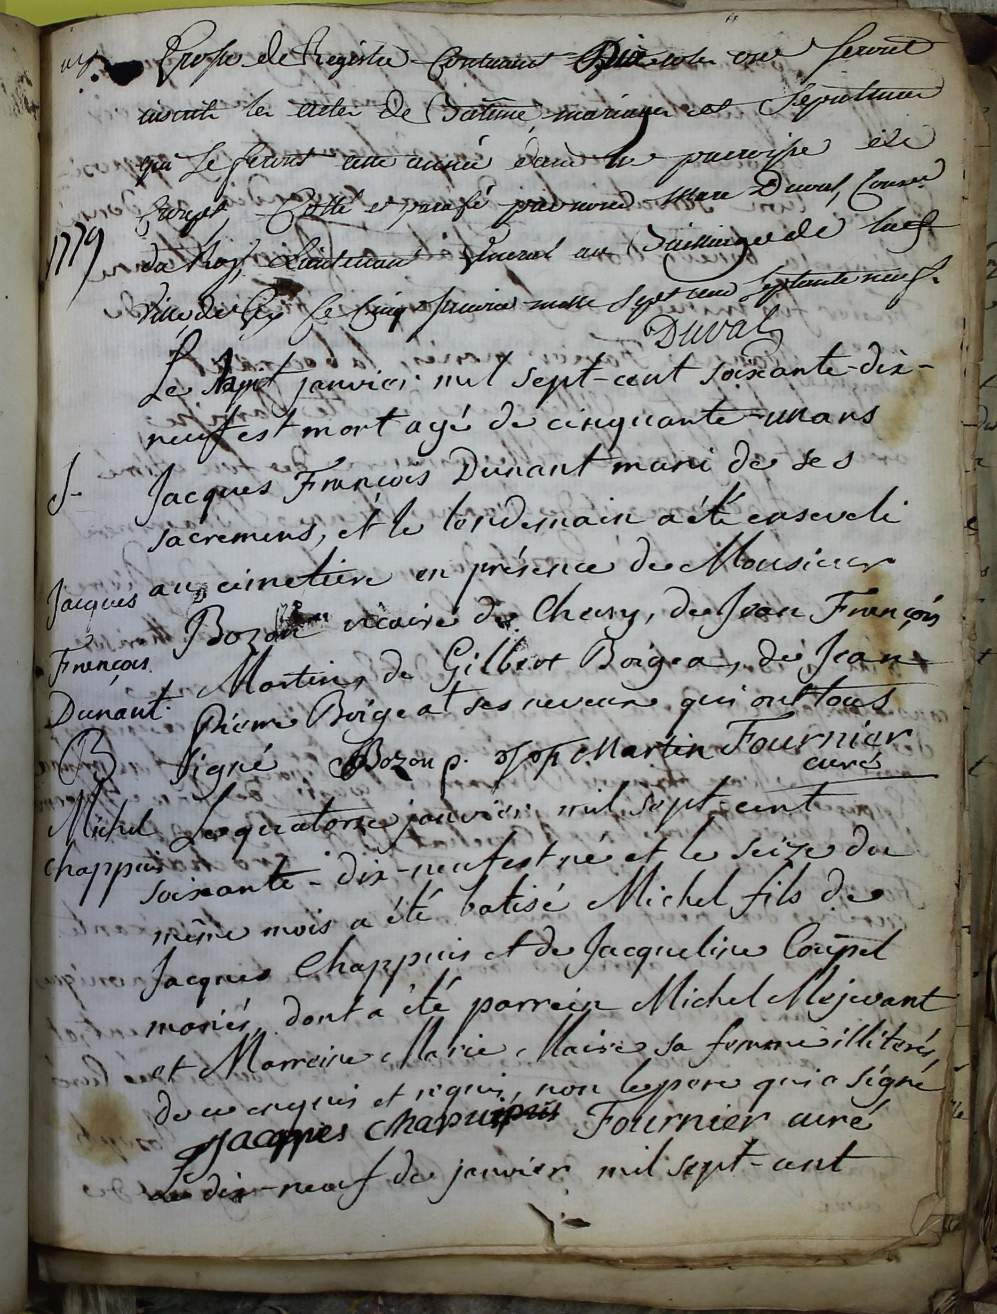 de Registre Contenant seront
inscrits les actes de Batême, mariages et Sepultures
qui se feront une année dans la paroisse
Cotté et parafé par nous Marc Duval, Conser.
1779
du Roy, Lieutenant General au Bailliage de
Ville de Gex le Cinq Janvier mille Sept cent Septante neuf.
Duval
Le sept janvier mil sept-cent soixante-dix-
neuf est mort agé de cinquante-un ans
S.
Jacques François Dunant muni de ses
sacremens, et le londemain a été enseveli
au cimetiere en présence de Monsieur
Jacques
François
Dunant.
Bozon vicaire de Chevry, de Jean François
Martin, de Gilbert Boigea, de Jean
Pierre Boigeat ses neveux qui ont tous
signé Bozon p. Martin Fournier
curé
B
Michel
Chappuis
Le quatorze janvier mil sept-cent
soixante-dix-neuf est né et le seize du
même mois a été batisé Michel fils de
Jacques Chappuis et de Jacqueline
mariés, dont a été parrein Michel Mejevant
et Marreine Marie Maire sa femme illiterés,
de ce enquis et requis, non le pere qui a signé
Jacques Chapuis Fournier curé
Le dix-neuf de janvier mil sept-cent